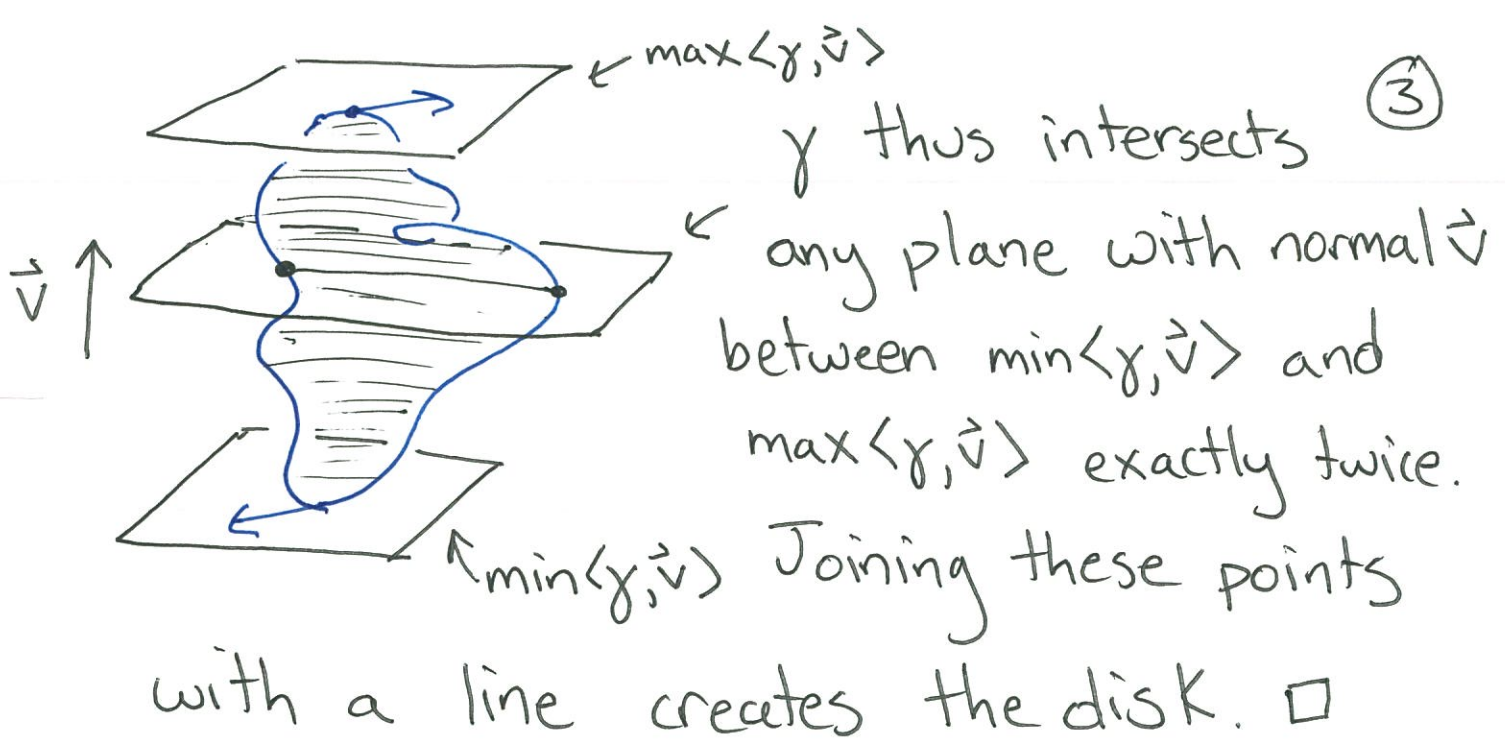 max<γ,v⃗>
③
γ thus intersects
any plane with normal v⃗
v⃗
between min<γ,v⃗> and
max<γ,v⃗> exactly twice.
min<γ,v⃗>
Joining these points
with a line creates the disk. □